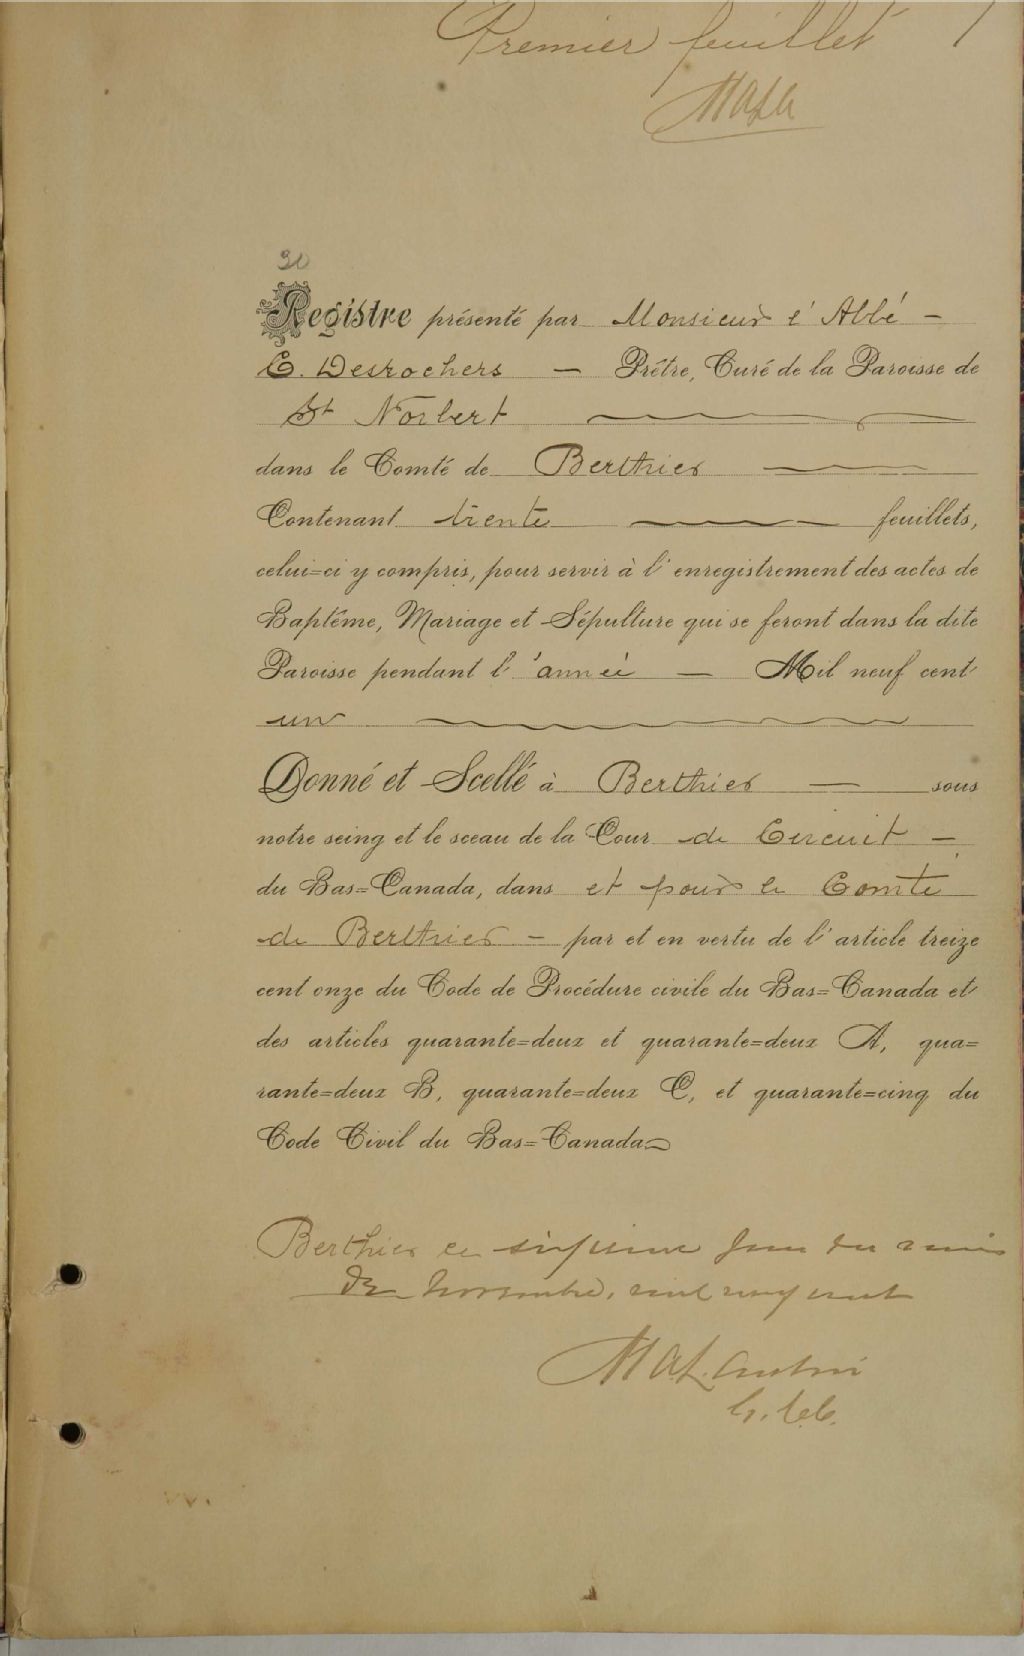 Premier feuillet 1
30
Registre présenté par Monsieur l'Abbé –
C. Desrochers – Prêtre, Curé de la Paroisse de
St Norbert
dans le Comté de Berthier
Contenant trente feuillets,
celui=ci y compris, pour servir à l'enregistrement des actes de
Baptême, Mariage et Sépulture qui se feront dans la dite
Paroisse pendant l'année – Mil neuf cent
un
Donné et Scellé à Berthier – sous
notre seing et le sceau de la Cour de Circuit –
du Bas=Canada, dans et pour le Comté
de Berthier – par et en vertu de l'article treize
cent onze du Code de Procédure civile du Bas=Canada et
des articles quarante=deux et quarante=deux A, qua=
rante=deux B, quarante=deux C, et quarante=cinq du
Code Civil du Bas=Canada
Berthier ce sixième jour du mois
de novembre, mil neuf cent